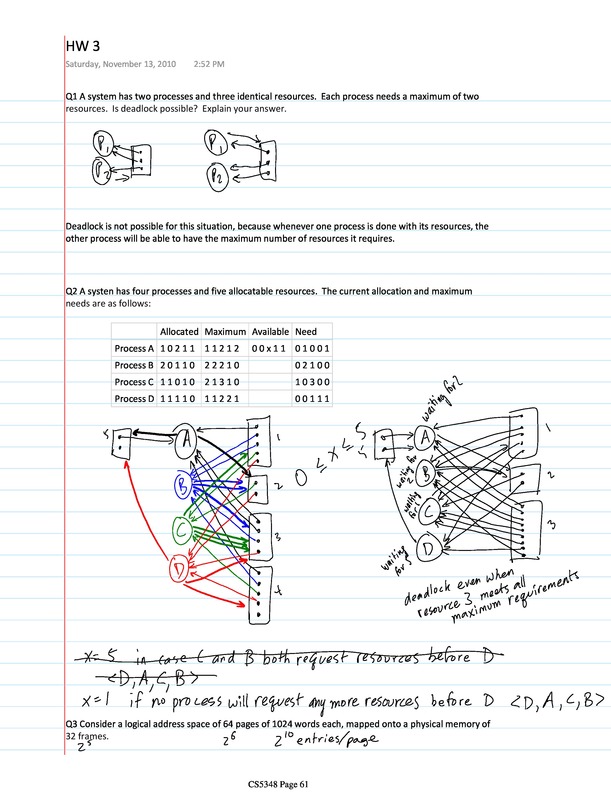 HW 3
Saturday, November 13, 2010 2:52 PM
Q1 A system has two processes and three identical resources. Each process needs a maximum of two
resources. Is deadlock possible? Explain your answer.
P1 P1
P2 P2
Deadlock is not possible for this situation, because whenever one process is done with its resources, the
other process will be able to have the maximum number of resources it requires.
Q2 A systen has four processes and five allocatable resources. The current allocation and maximum
needs are as follows:
Allocated Maximum Available Need
Process A 1 0 2 1 1 1 1 2 1 2 0 0 x 1 1 0 1 0 0 1
Process B 2 0 1 1 0 2 2 2 1 0 0 2 1 0 0
Process C 1 1 0 1 0 2 1 3 1 0 1 0 3 0 0
Process D 1 1 1 1 0 1 1 2 2 1 0 0 1 1 1
5 A 1
B 2
C 3
D 4
0 ≤ x ≤ 5
5 A waiting for 2 1
B waiting for 2 2
C waiting for 3
D waiting for 5
deadlock even when
resource 3 meets all
maximum requirements
x = 5 in case C and B both request resources before D
<D, A, C, B>
x = 1 if no process will request any more resources before D <D, A, C, B>
Q3 Consider a logical address space of 64 pages of 1024 words each, mapped onto a physical memory of
32 frames.
2^5 2^6 2^10 entries/page
CS5348 Page 61